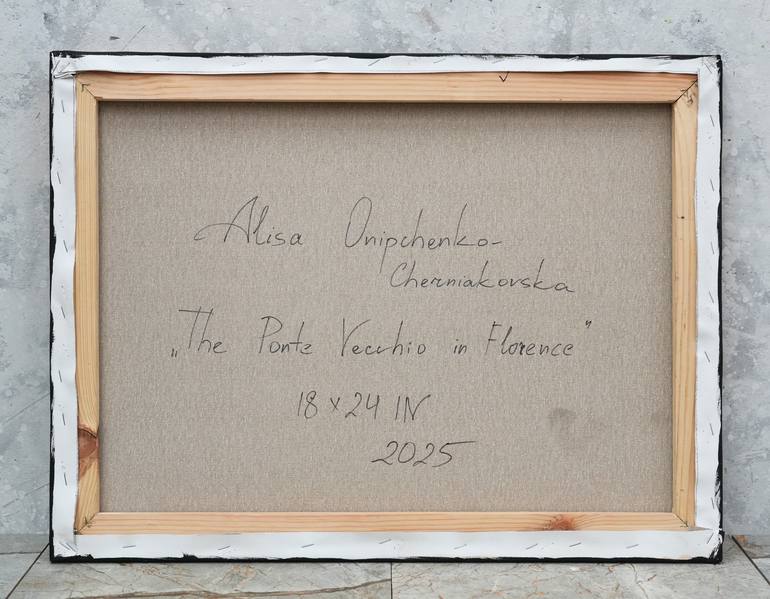 Alisa Onipchenko-
Cherniakovska
„The Ponte Vecchio in Florence”
18 x 24 IN
2025